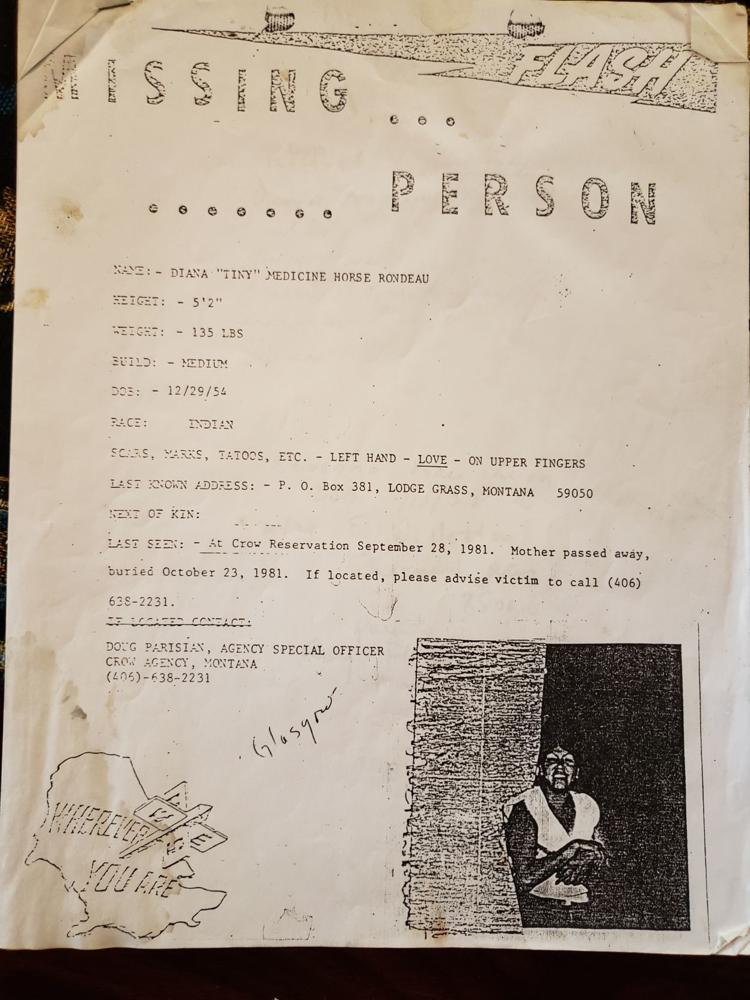 FLASH
MISSING ...
....... PERSON
NAME: - DIANA "TINY" MEDICINE HORSE RONDEAU
HEIGHT: - 5'2"
WEIGHT: - 135 LBS
BUILD: - MEDIUM
DOB: - 12/29/54
RACE: INDIAN
SCARS, MARKS, TATOOS, ETC. - LEFT HAND - LOVE - ON UPPER FINGERS
LAST KNOWN ADDRESS: - P. O. Box 381, LODGE GRASS, MONTANA 59050
NEXT OF KIN:
LAST SEEN: - At Crow Reservation September 28, 1981. Mother passed away,
buried October 23, 1981. If located, please advise victim to call (406)
638-2231.
IF LOCATED CONTACT:
DOUG PARISIAN, AGENCY SPECIAL OFFICER
CROW AGENCY, MONTANA
(406)-638-2231
Glasgow
WHEREVER
YOU ARE